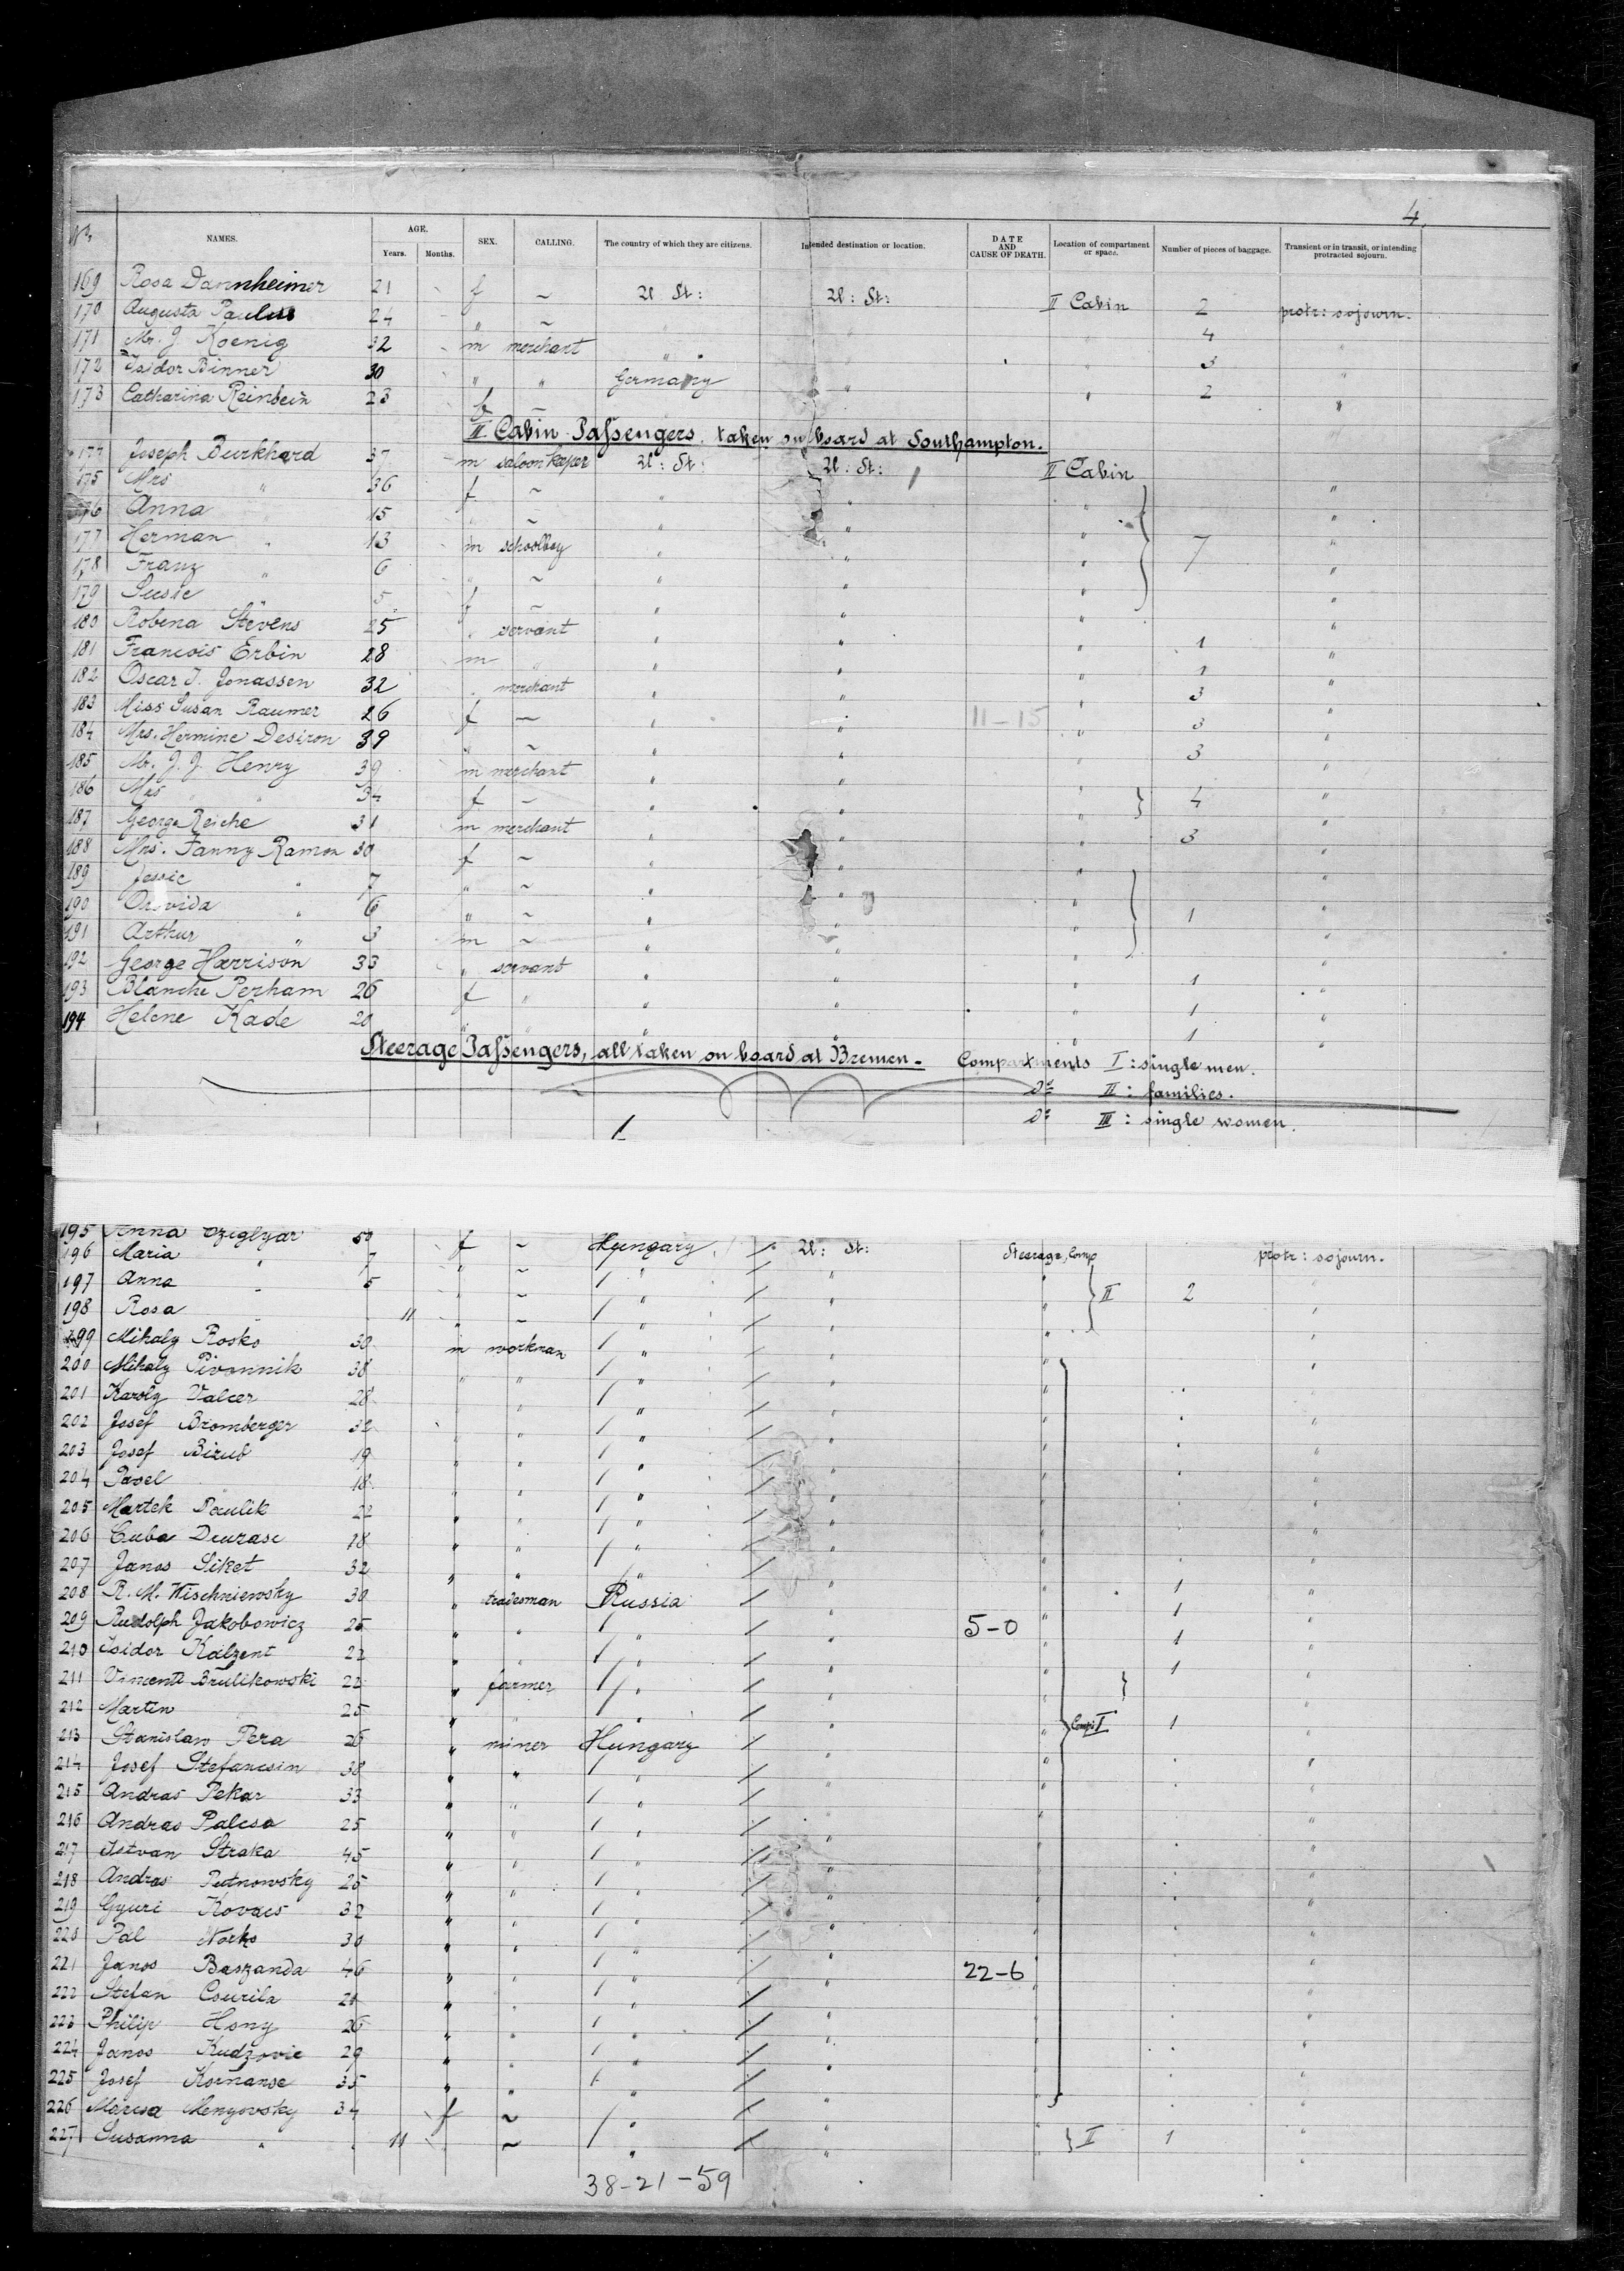 4.
No. NAMES. AGE. Years. Months. SEX. CALLING. The country of which they are citizens. Intended destination or location. DATE AND CAUSE OF DEATH. Location of compartment or space. Number of pieces of baggage. Transient or in transit, or intending protracted sojourn.
169 Rosa Dannheimer 21 f ~ U St: U: St: II Cabin 2 protr: sojourn.
170 Augusta Paulus 24 " ~ 4 "
171 Mr. J. Koenig 32 m merchant " " 3 "
172 Isidor Binner 30 " " Germany " " 2 "
173 Catharina Reinbein 23 f ~ "
II Cabin Passengers taken on board at Southampton.
177 Joseph Burkhard 37 m saloonkeeper U: St: U: St: II Cabin
175 Mrs " 36 f ~ " " " "
176 Anna 15 " ~ " " " "
177 Herman " 13 m schoolboy " " " 7 "
178 Franz " 6 " ~ " " " "
179 Susie " 5 f ~ " " " "
180 Robena Stevens 25 " servant " " " 1 "
181 Francois Erbin 28 m " " " " 1 "
182 Oscar J. Jonassen 32 " merchant " " " 3 "
183 Miss Susan Raumer 26 f ~ " " 11-15 " 3 "
184 Mrs. Hermine Desiron 39 " ~ " " " 3 "
185 Mr. J. J. Henry 39 m merchant " " " "
186 Mrs " " 34 f ~ " " " 4 "
187 George Reiche 31 m merchant " " " 3 "
188 Mrs. Fanny Ramon 30 f ~ " " " "
189 Jessie " 7 " ~ " " " "
190 " 6 " ~ " " " 1 "
191 Arthur " 3 m ~ " " " "
192 George Harrison 33 " servant " " " 1 "
193 Blanche Perham 26 f " " " " 1 "
194 Helene Kade 20 " " " " " 1 "
Steerage Passengers, all taken on board at Bremen. - Compartments I: single men.
do II: families.
do III: single women.
1
195 Anna Cziglyar 50 f ~ Hungary / U: St: Steerage, Comp protr: sojourn.
196 Maria " 7 " ~ " / " "
197 Anna " 5 " ~ " / " " II 2
198 Rosa 11 " ~ " / " " "
199 Mihaly Rosko 30 m workman " / " " "
200 Mihaly Pivonnik 38 " " " / " " "
201 Karoly Valcer 28 " " / " " "
202 Josef Bromberger 32 " " / " " "
203 Josef Bizub 19 " " " / " " "
204 Pavel 18 " " " / " "
205 Martek Paulik 22 " " " / " "
206 18 " " " / " " "
207 Janos Siket 32 " " " / " " "
208 R. M. Wischniewsky 30 " tradesman Russia / " " 1 "
209 Rudolph Jakobowicz 25 " " " / " 5-0 " 1 "
210 Isidor Kalzent 22 " " " / " " 1 "
211 Vincenti Brulikowski 22 " farmer " / " " 1 "
212 Martin 25 " " " / " "
213 Stanislaw Pera 26 " miner Hungary / " " Comp: I 1 "
214 Josef Stefancsin 38 " " " / " " "
215 Andras Pekar 33 " " " / " " "
216 Andras Palcso 25 " " " / " " "
217 Istvan Straka 45 " " " / " " "
218 Andras Putnowsky 25 " " " / " " "
219 Gyuri Kovacs 32 " " " / " " "
220 Pal 30 " " " / " " "
221 Janos Baszanda 46 " " " / " 22-6 " "
222 Stefan Csurila 21 " " " / " " "
223 Philip Hony 26 " " " / " " "
224 Janos Kudzovic 29 " " " / " " "
225 Josef Kornanse 35 " " " / " " "
226 Marisa Menyovsky 34 f ~ " / " " "
227 Susanna " 11 ~ " / " " II 1 "
38-21-59